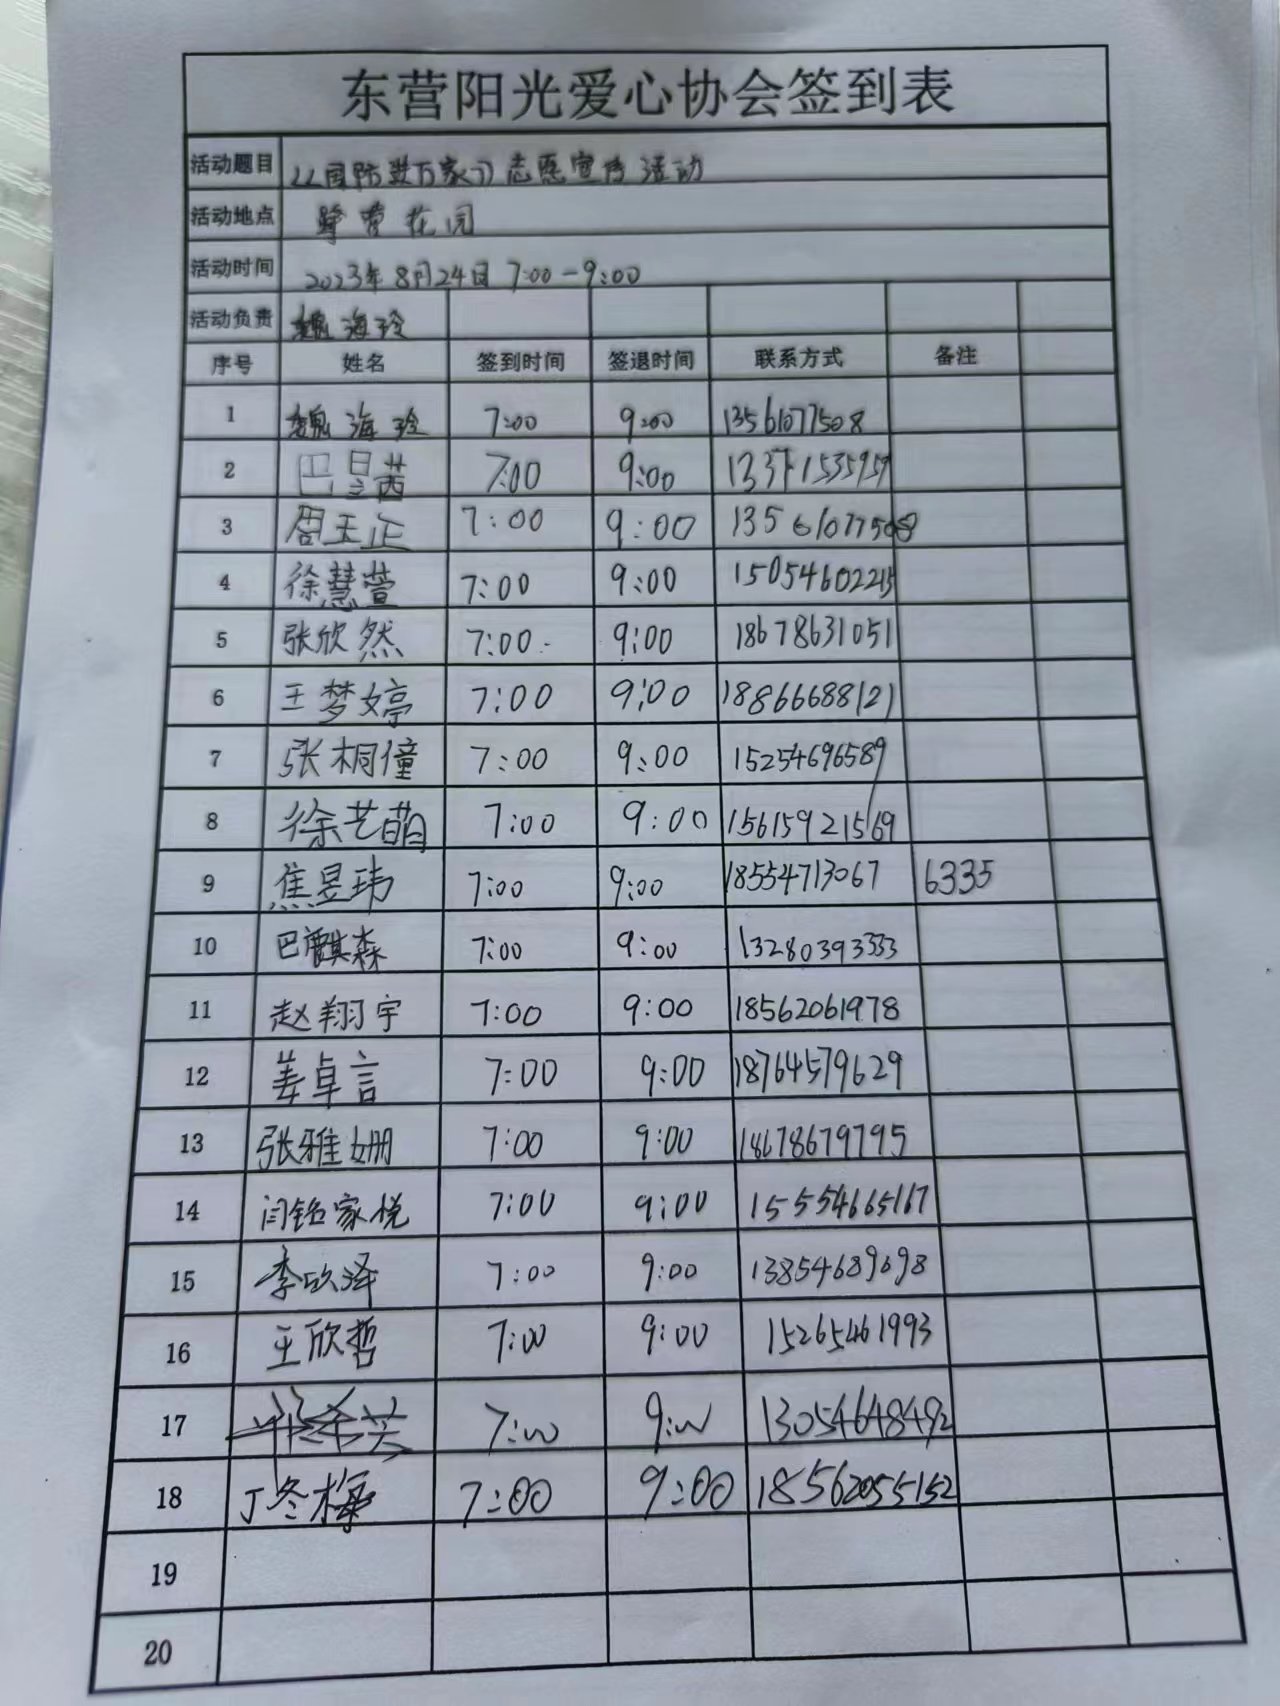 东营阳光爱心协会签到表
活动题目 《国防进万家》志愿宣传活动
活动地点 花园
活动时间 2023年8月24日 7:00-9:00
活动负责 魏海玲
序号 姓名 签到时间 签退时间 联系方式 备注
1 魏海玲 7:00 9:00 13561077508
2 巴昱茜 7:00 9:00
3 周玉正 7:00 9:00 13561077508
4 徐慧萱 7:00 9:00
5 张欣然 7:00 9:00 18678631051
6 王梦婷 7:00 9:00 18866688121
7 张桐僮 7:00 9:00 15254696589
8 徐艺萌 7:00 9:00 15615921569
9 焦昱玮 7:00 9:00 18554713067 6335
10 巴麒森 7:00 9:00 13280393333
11 赵翔宇 7:00 9:00 18562061978
12 姜卓言 7:00 9:00 18764579629
13 张雅姗 7:00 9:00 18678679795
14 闫铭家悦 7:00 9:00 15554665167
15 李欣泽 7:00 9:00 13854689698
16 王欣哲 7:00 9:00 15265461993
17 7:00 9:00 13054648492
18 丁冬梅 7:00 9:00 18562055152
19
20